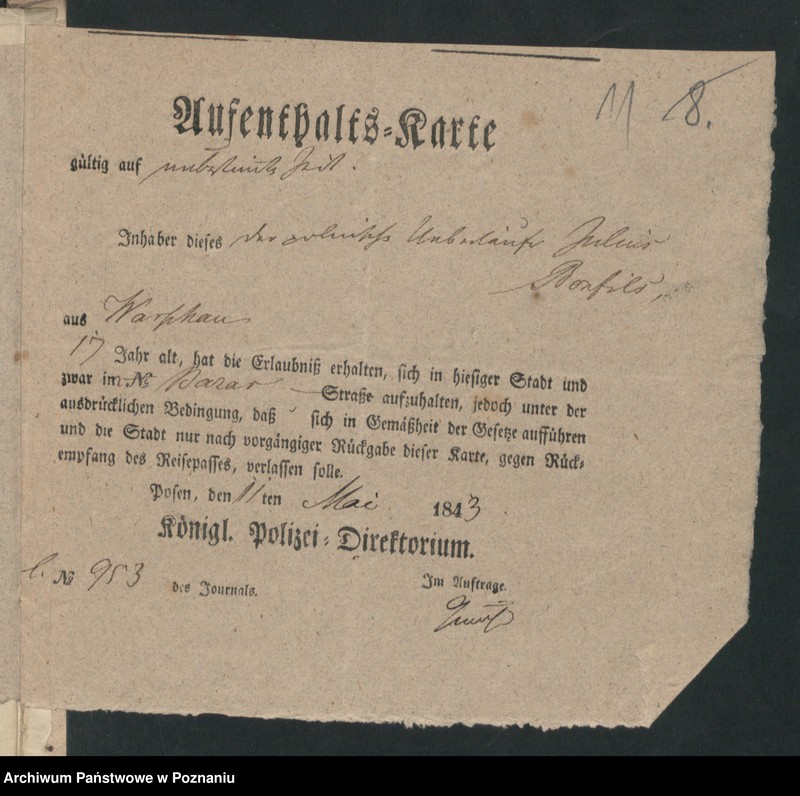 11 8.
Aufenthalts-Karte
gültig auf unbestimte Zeit.
Inhaber dieses der polnische Ueberläufer Julius
Bonfils,
aus Warschau
17 Jahr alt, hat die Erlaubniß erhalten, sich in hiesiger Stadt und
zwar im № Bazar Straße aufzuhalten, jedoch unter der
ausdrücklichen Bedingung, daß sich in Gemäßheit der Gesetze aufführen
und die Stadt nur nach vorgängiger Rückgabe dieser Karte, gegen Rück-
empfang des Reisepasses, verlassen solle.
Posen, den 11ten Mai 1843
Königl. Polizei-Direktorium.
№ 953 des Journals.
Im Auftrage.
Archiwum Państwowe w Poznaniu